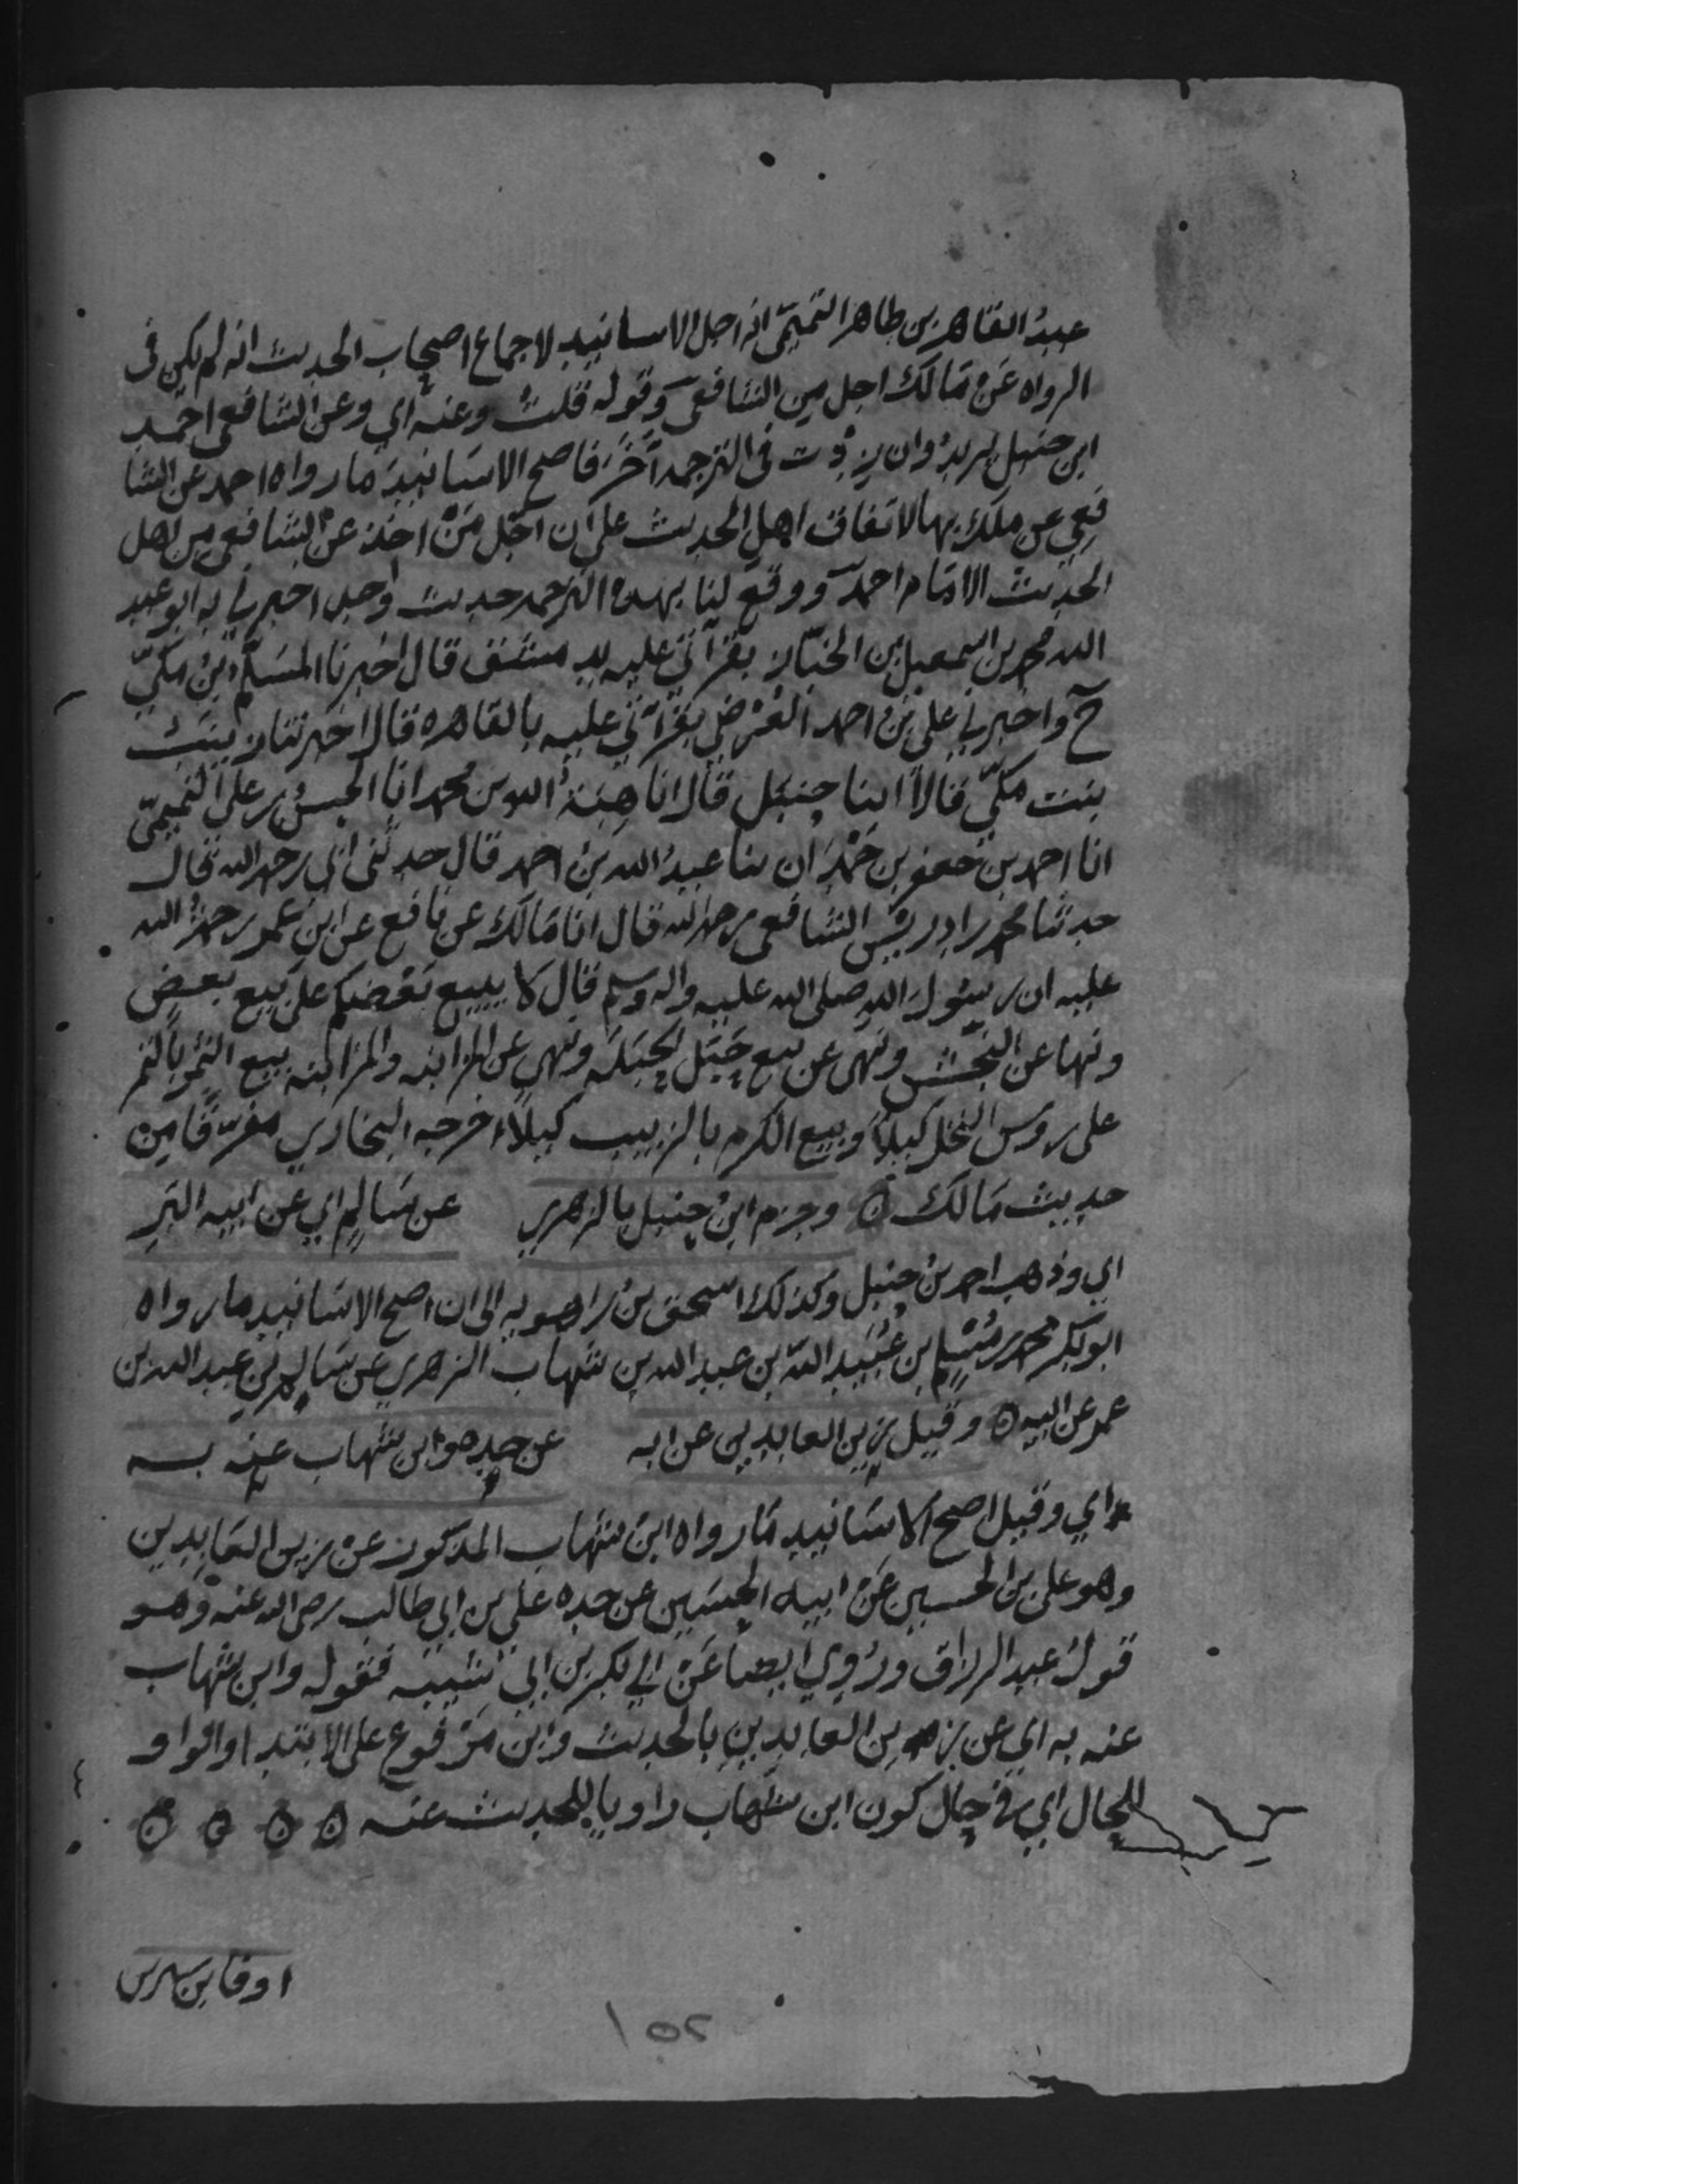 عبدُ القاهر بن طاهر التميمّى انه اجل الاسانيد لاجماع اصحاب الحديث انه لم يكن فى
الرواه عَنْ مَالك اجل من الشافعى وَقوله قلتُ وعنه اي وعن الشافعى احمد
ابن حنبل يريد وان زِدْت فى الترجمه احَرَ فاصح الاسَانيد مَا رواه احمد عن الشا
فعِي عن ملك بها لاتفاق اهل الحديث على ان اجَل مَنْ اخذ عن الشافعى من اهل
الحديث الامَام احمد ووقع لنا بهذه الترجمه حديث واحد اخبرني به ابو عبد
الله محمد بن اسمعيل بن الخبّاز بقرأتي عليه بدمشق قال اخبرنا المسَلم بن مكّيّ
ح واخبرني على بن احمد العُرْضي بقرأتي عليه بالقاهره قال اخبرتنا زينبُ
بنت مكّيّ قالا ابنا حنبَل قال انا هِبَةُ الله بن محمد انا الحسن بن على التميميّ
انا احمد بن جعفر بن حَمْدَان ثنا عبدُ الله بن احمد قال حدثنى ابي رحمه الله قال
حدثنا محمد بن ادريس الشافعى رحمه الله قال انا مَالك عن نافع عن ابن عمر رحمةُ الله
عليه ان رسُولَ الله صلى الله عليه واله وسلم قال لا يبيع بَعْضكم على بَيع بعض
ونها عن النجَش ونهى عن بيع حَبَل الحَبَلَه ونهى عن المزابنه والمزابنه بيع الثمر بالتمر
على روس النخل كيلاً وَبيع الكرم بالزبيب كيلاً اخرجه البخاري مفرّقا من
حديث مَالك ۞ وجزم ابنُ حنبل بالزهري عن سَالمٍ اي عن ابيه البَرِ
اي وذهب احمد بنُ حنبل وكذلك اسحق بنُ راهويه الى ان اصح الاسَانيد ما رواه
ابو بَكر محمد بن مُسْلِم بن عُبَيد الله بن عبد الله بن شهاب الزهري عن سَالم بن عبد الله بن
عمر عن ابيه ۞ وقيل زين العابدين عن ابه عن جده وابن شهاب عنه به
اي وقيل اصح الاسَانيد مَا رواه ابن شهاب المذكور عن زين العَابدين
وهو على بن الحسين عَن ابيه الحسَين عن جده على بن ابي طالب رضى الله عنه وَهو
قولُ عبد الرزاق ورُوي ايضا عَن ابي بكر بن ابي شيبه فقوله وابن شهاب
عنه به اي عن زين العابدين بالحديث وابن مَرْفوع على الابتدا والواو
للحال اي في حال كون ابن شهاب راويا للحديث عنه ۞ ۞ ۞ ۞
او فابن سيرين